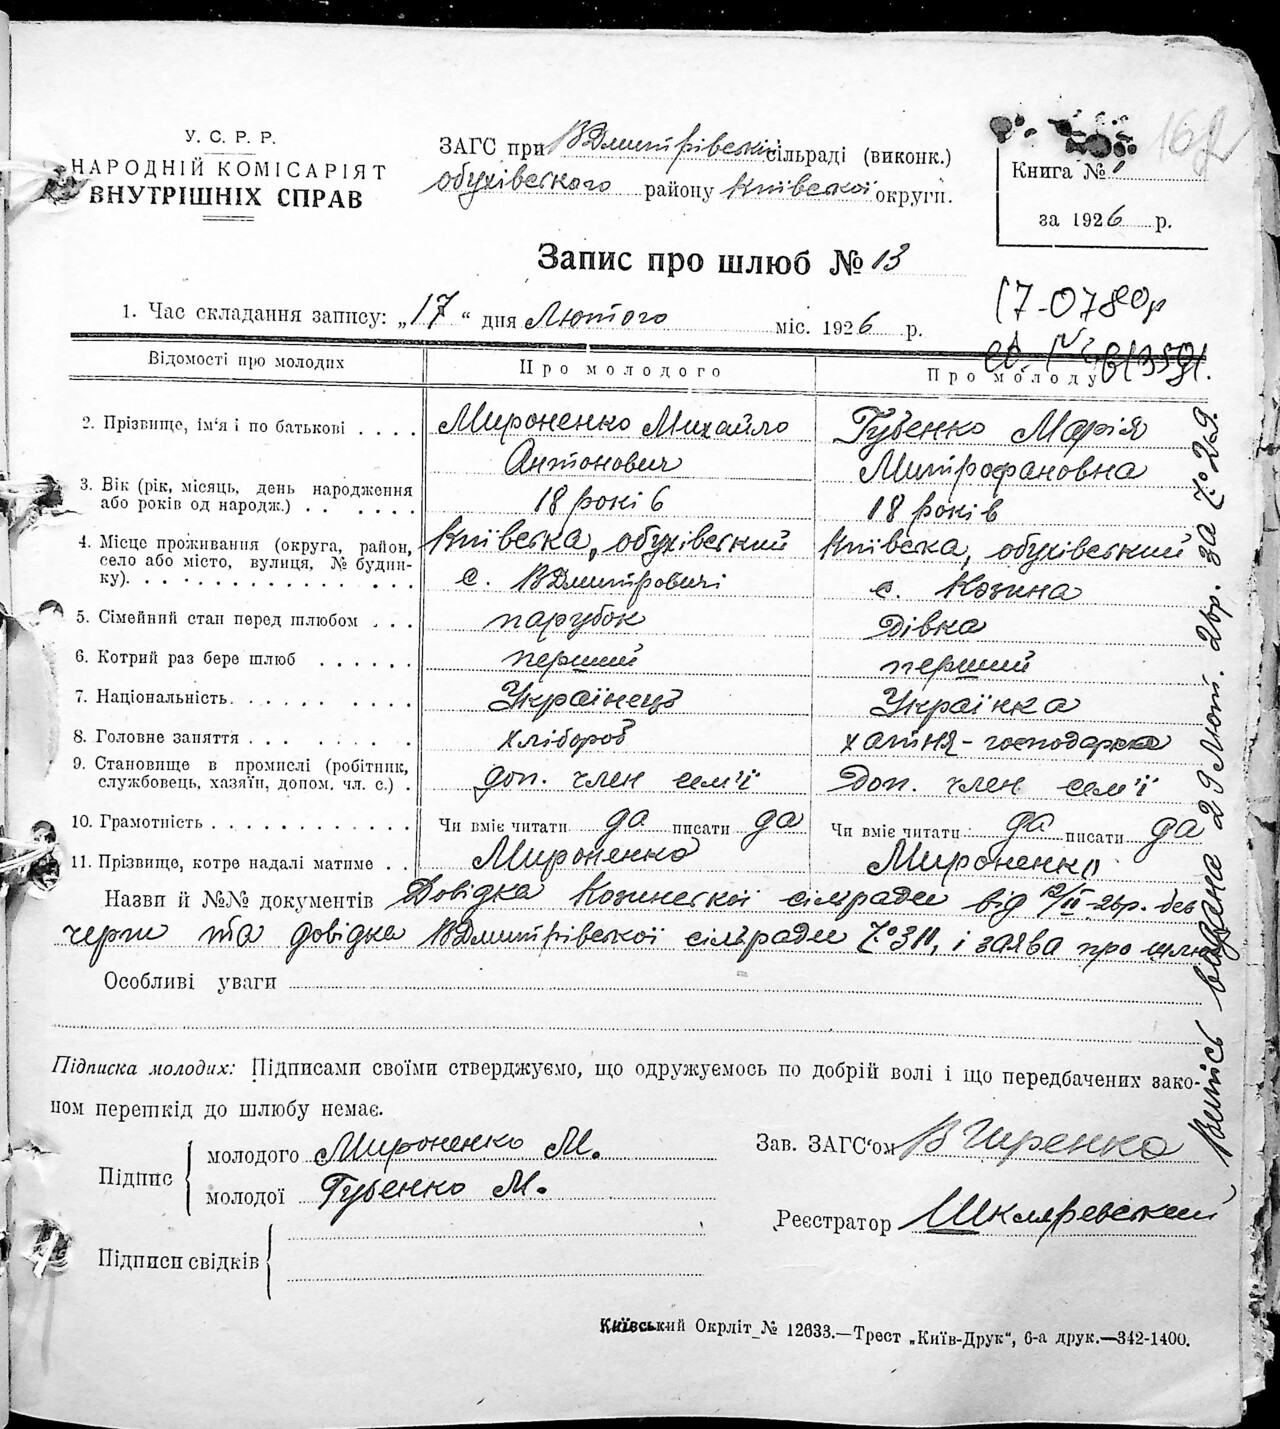 У. С. Р. Р.
НАРОДНІЙ КОМІСАРІЯТ
ВНУТРІШНІХ СПРАВ
ЗАГС при ВДмитрівській сільраді (виконк.)
обухівського району Київської округи.
Книга № 1
за 1926 р.
Запис про шлюб № 13
1. Час складання запису: „17“ дня Лютого міс. 1926 р.
Відомості про молодих
Про молодого
Про молоду
2. Прізвище, ім'я і по батькові . . . . Мироненко Михайло Губенко Марія
Антонович Митрофановна
3. Вік (рік, місяць, день народження
або років од народж.) . . . . . . . 18 років 18 років
4. Місце проживання (округа, район, Київська, обухівський Київська, обухівський
село або місто, вулиця, № будин-
ку). . . . . . . . . . . . . . . с. ВДмитровичі с. Козина
5. Сімейний стан перед шлюбом . . . парубок Дівка
6. Котрий раз бере шлюб . . . . . . перший перший
7. Національність. . . . . . . . . . Українець Українка
8. Головне заняття . . . . . . . . хлібороб хатня-господарка
9. Становище в промислі (робітник,
службовець, хазяїн, допом. чл. с.) . доп. член сем'ї Доп. член сем'ї
10. Грамотність . . . . . . . . . . . . Чи вміє читати да писати да Чи вміє читати да писати да
11. Прізвище, котре надалі матиме . . Мироненко Мироненко
Назви й №№ документів Довідка Козинської сільради від /II-26р. без
черги та довідка ВДмитрівської сільради № 311, і заява про шлюб
Особливі уваги
Підписка молодих: Підписами своїми стверджуємо, що одружуємось по добрій волі і що передбачених зако-
ном перешкід до шлюбу немає.
Підпис
молодого Мироненко М.
молодої Губенко М.
Зав. ЗАГС'ом
Реєстратор Шкляревський
Підписи свідків
Київський Окрліт № 12633.—Трест „Київ-Друк“, 6-а друк.—342-1400.
Витпсь видана 29 Лют. 26р. за № 29.